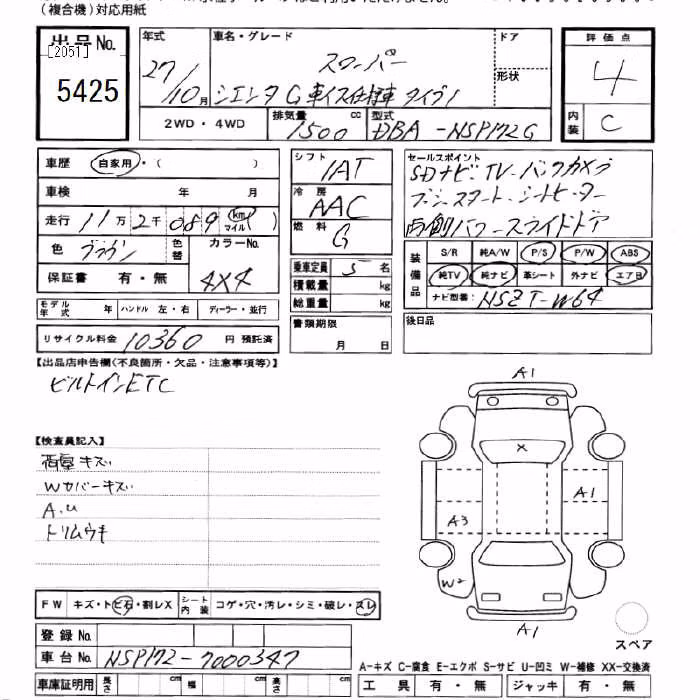 (複合機)対応用紙
出品No.
[2051]
5425
年式
27/10月
車名・グレード
スローパー
シエンタ G 車イス仕様車 タイプ1
ドア
形状
評価点
4
内装
C
2WD・4WD
排気量
1500
cc
型式
DBA-NSP172G
車歴
自家用・( )
車検 年 月
走行 11万2千089 km マイル( )
色
ブラウン
色替
カラーNo.
4X4
保証書 有・無
シフト
IAT
冷房
AAC
燃料
G
乗車定員 5名
積載量 kg
総重量 kg
書類期限
月 日
セールスポイント
SDナビ・TV・バックカメラ
プッシュスタート・シートヒーター
両側パワースライドドア
装備品
S/R 純A/W P/S P/W ABS
純TV 純ナビ 革シート 外ナビ エアB
ナビ型番 NSZT-W64
後日品
モデル年式 年 ハンドル 左・右 ディーラー・並行
リサイクル料金 10360 円 預託済
【出品店申告欄(不良箇所・欠品・注意事項等)】
ビルトインETC
【検査員記入】
Wカバーキズ
A.U
トリムウキ
A1
X
A1
A3
W2
A1
スペア
FW キズ・トビ石・割レX シート内装 コゲ・穴・汚レ・シミ・破レ・スレ
登録No.
車台No. NSP172-7000347
車庫証明用 長さ cm 幅 cm 高さ cm
A-キズ C-腐食 E-エクボ S-サビ U-凹ミ W-補修 XX-交換済
工具 有・無 ジャッキ 有・無